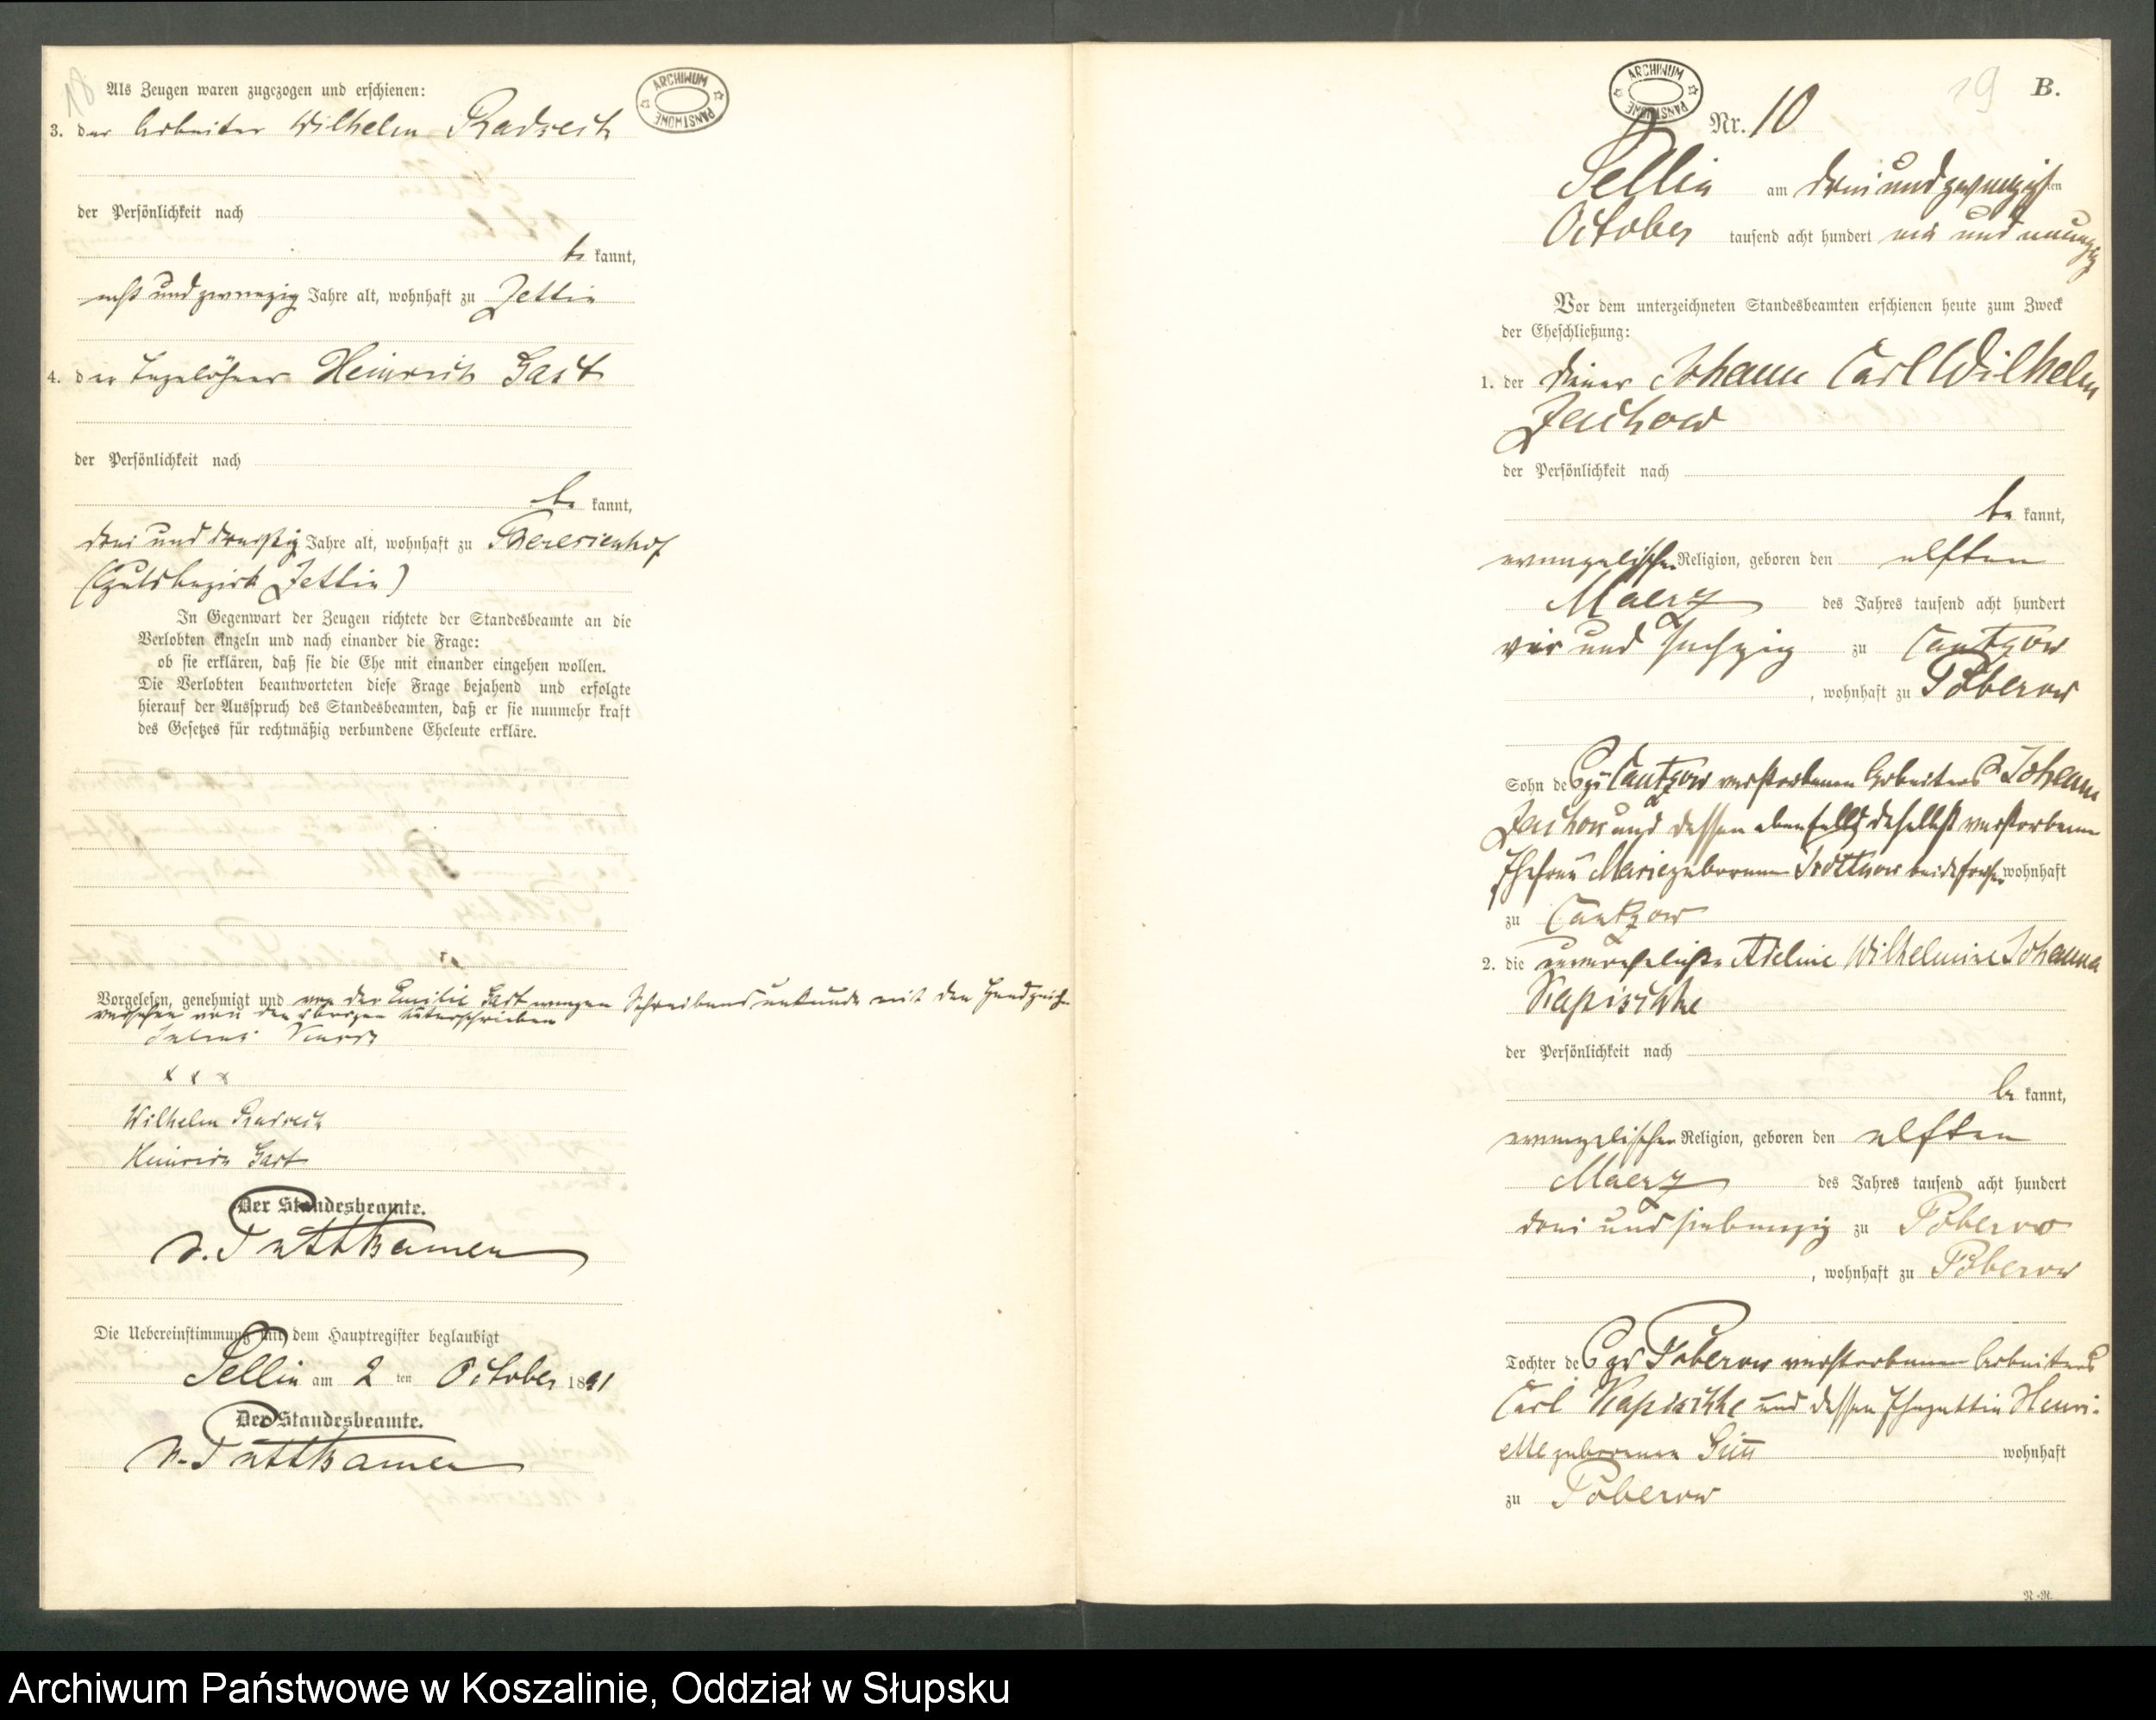 18
Als Zeugen waren zugezogen und erschienen:
3. der Arbeiter Wilhelm Radseck
der Persönlichkeit nach
be kannt,
acht und zwanzig Jahre alt, wohnhaft zu Zettin
4. der Tagelöhner Heinrich Gast
der Persönlichkeit nach
be kannt,
drei und dreißig Jahre alt, wohnhaft zu Theresienhof
(Gutsbezirk Zettin)
In Gegenwart der Zeugen richtete der Standesbeamte an die
Verlobten einzeln und nach einander die Frage:
ob sie erklären, daß sie die Ehe mit einander eingehen wollen.
Die Verlobten beantworteten diese Frage bejahend und erfolgte
hierauf der Ausspruch des Standesbeamten, daß er sie nunmehr kraft
des Gesetzes für rechtmäßig verbundene Eheleute erkläre.
Vorgelesen, genehmigt und von der Emilie Gast wegen Schreibensunkunde mit den Handzeichen
versehen von den übrigen unterschrieben
x x x
Wilhelm Radseck
Heinrich Gast
Der Standesbeamte.
v. Puttkamer
Die Uebereinstimmung mit dem Hauptregister beglaubigt
Sellin am 2 ten October 1891
Der Standesbeamte.
v. Puttkamer
ARCHIWUM PAŃSTWOWE
ARCHIWUM PAŃSTWOWE
19 B.
Nr. 10
Sellin am drei und zwanzigsten
October tausend acht hundert ein und neunzig
Vor dem unterzeichneten Standesbeamten erschienen heute zum Zweck
der Eheschließung:
1. der Diener Johann Carl Wilhelm
Zachow
der Persönlichkeit nach
be kannt,
evangelischer Religion, geboren den elften
Maerz des Jahres tausend acht hundert
vier und sechzig zu Cantzow
, wohnhaft zu Poberow
Sohn des zu Cantzow verstorbenen Arbeiters Johann
Zachow und dessen ebenfalls daselbst verstorbenen
Ehefrau Marie geborenen Trottnow beide früher wohnhaft
zu Cantzow
2. die unverehelichte Adeline Wilhelmine Johanna
Kapischke
der Persönlichkeit nach
be kannt,
evangelischer Religion, geboren den elften
Maerz des Jahres tausend acht hundert
drei und siebenzig zu Poberow
, wohnhaft zu Poberow
Tochter des zu Poberow verstorbenen Arbeiters
Carl Kapischke und dessen Ehegattin Henri-
ette geborenen wohnhaft
zu Poberow
R.-R.
Archiwum Państwowe w Koszalinie, Oddział w Słupsku